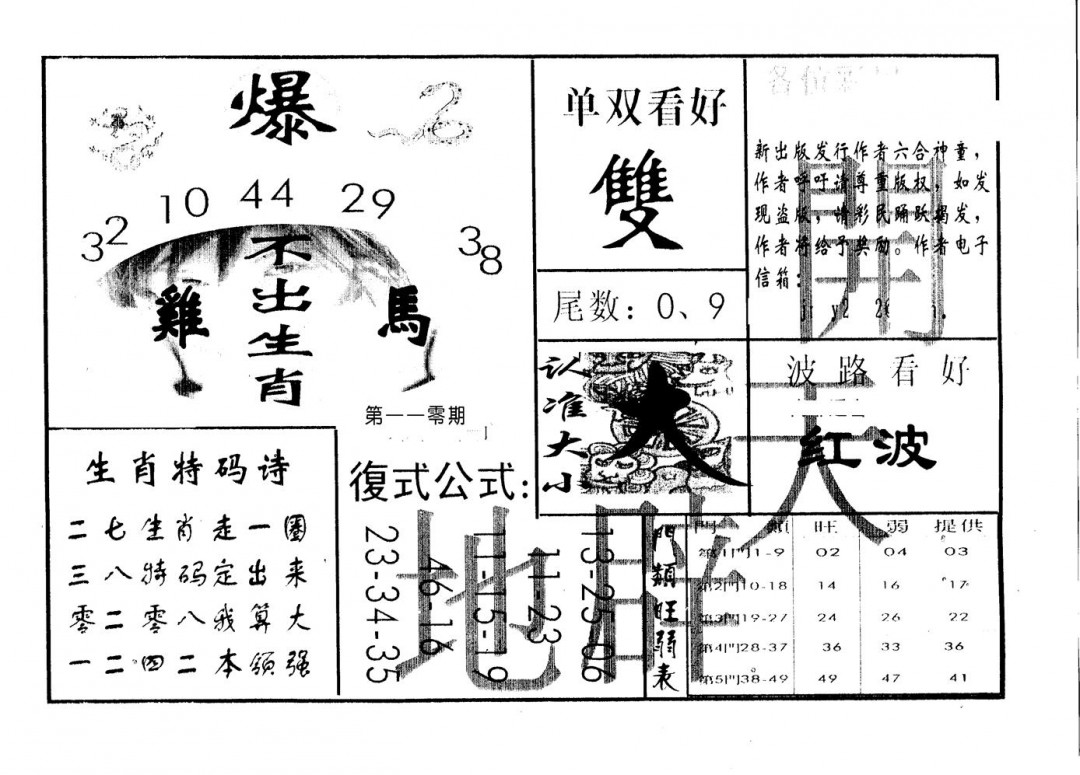 爆
32 10 44 29 38
不出生肖
雞 馬
第一一零期
单双看好
雙
尾数：0、9
认准大小
大
新出版发行作者六合神童，
作者呼吁请尊重版权，如发
现盗版，请彩民踊跃揭发，
作者将给予奖励。作者电子
信箱：
波路看好
红波
生肖特码诗
二七生肖走一圈
三八特码定出来
零二零八我算大
一二四二本领强
復式公式：
23-34-35
46-16
11-15-19
11-23
13-25-06
門類旺弱表
門類 旺 弱 提供
第1門1-9 02 04 03
第2門10-18 14 16 17
第3門19-27 24 26 22
第4門28-37 36 33 36
第5門38-49 49 47 41